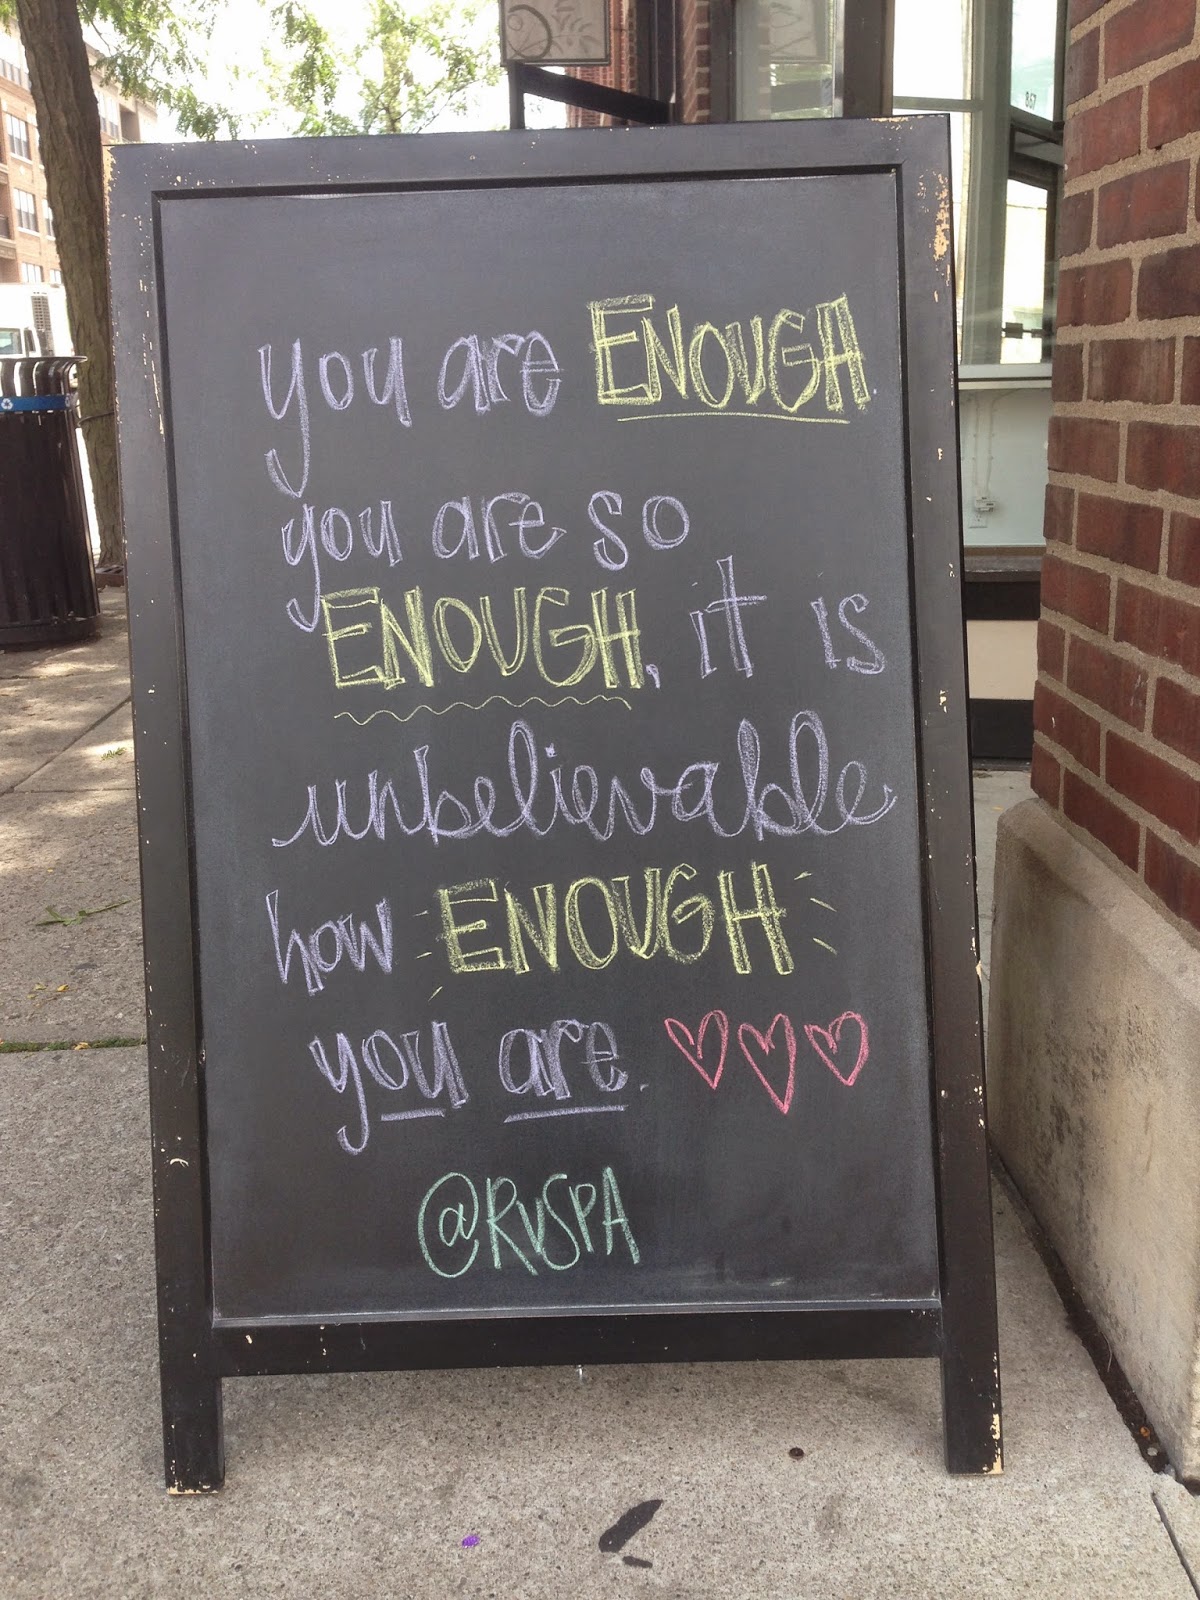 you are ENOUGH.
you are so
ENOUGH, it is
unbelievable
how ENOUGH
you are.
@RVSPA
867